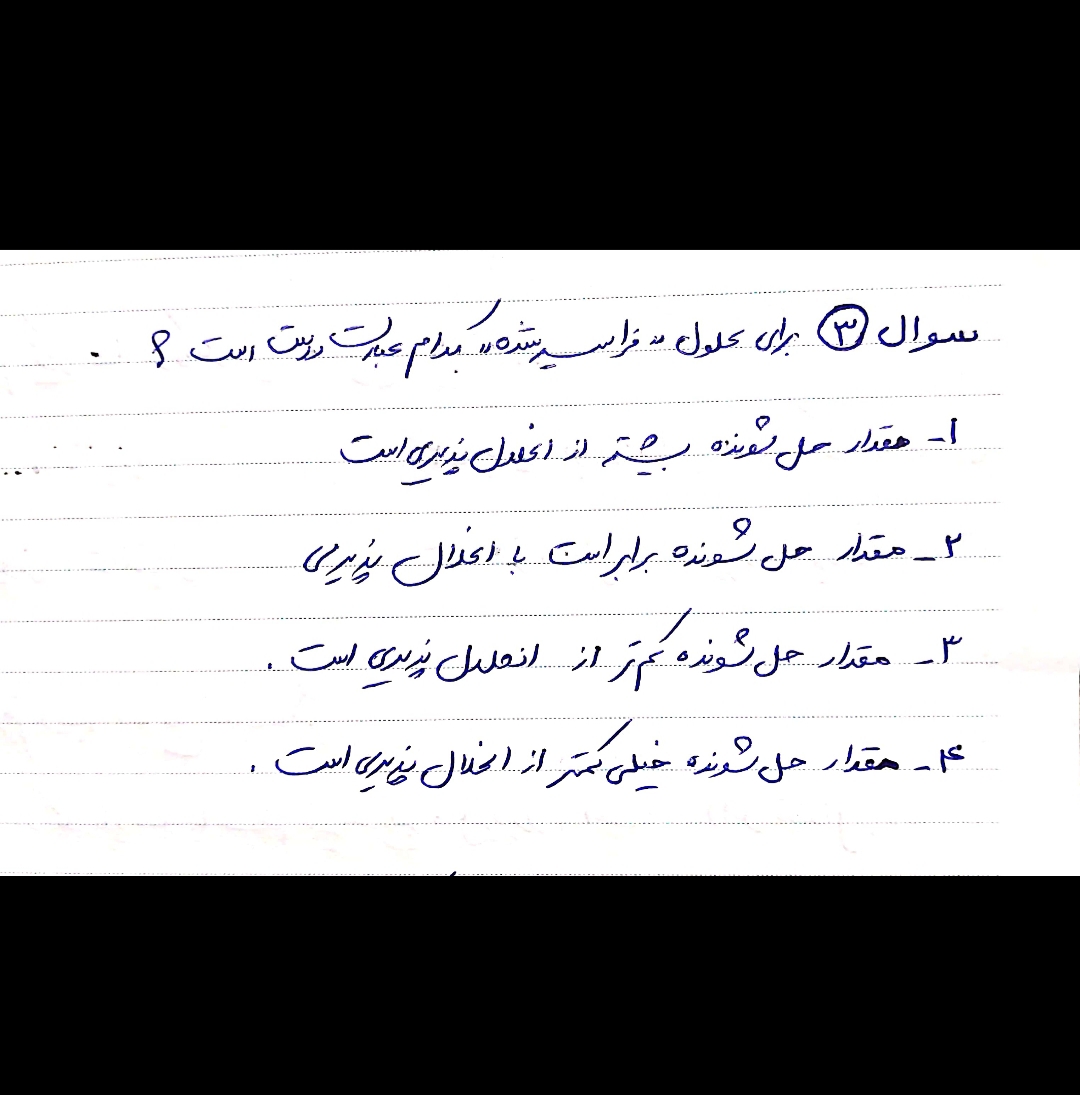 سوال ۳ برای محلول "فراسیرشده" کدام عبارت درست است ؟
۱- مقدار حل شونده بیشتر از انحلال پذیری است
۲- مقدار حل شونده برابر است با انحلال پذیری
۳- مقدار حل شونده کم تر از انحلال پذیری است .
۴- مقدار حل شونده خیلی کمتر از انحلال پذیری است .